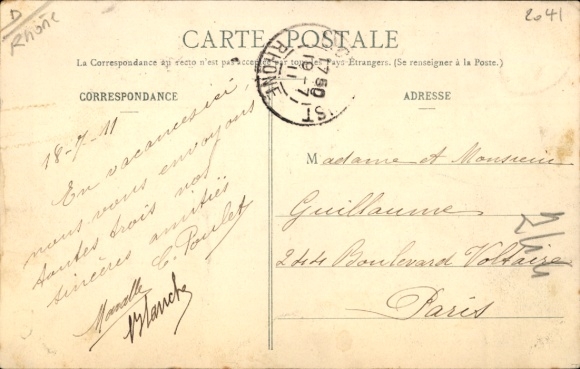 D
Rhône
2041
CARTE POSTALE
La Correspondance au recto n'est pas acceptée par tous les Pays Étrangers. (Se renseigner à la Poste.)
CORRESPONDANCE
ADRESSE
RHONE
18-7-11
En vacances ici,
nous vous envoyons
toutes trois nos
sincères amitiés
C. Poulet
Blanche
Madame et Monsieur
Guillaume
244 Boulevard Voltaire
Paris